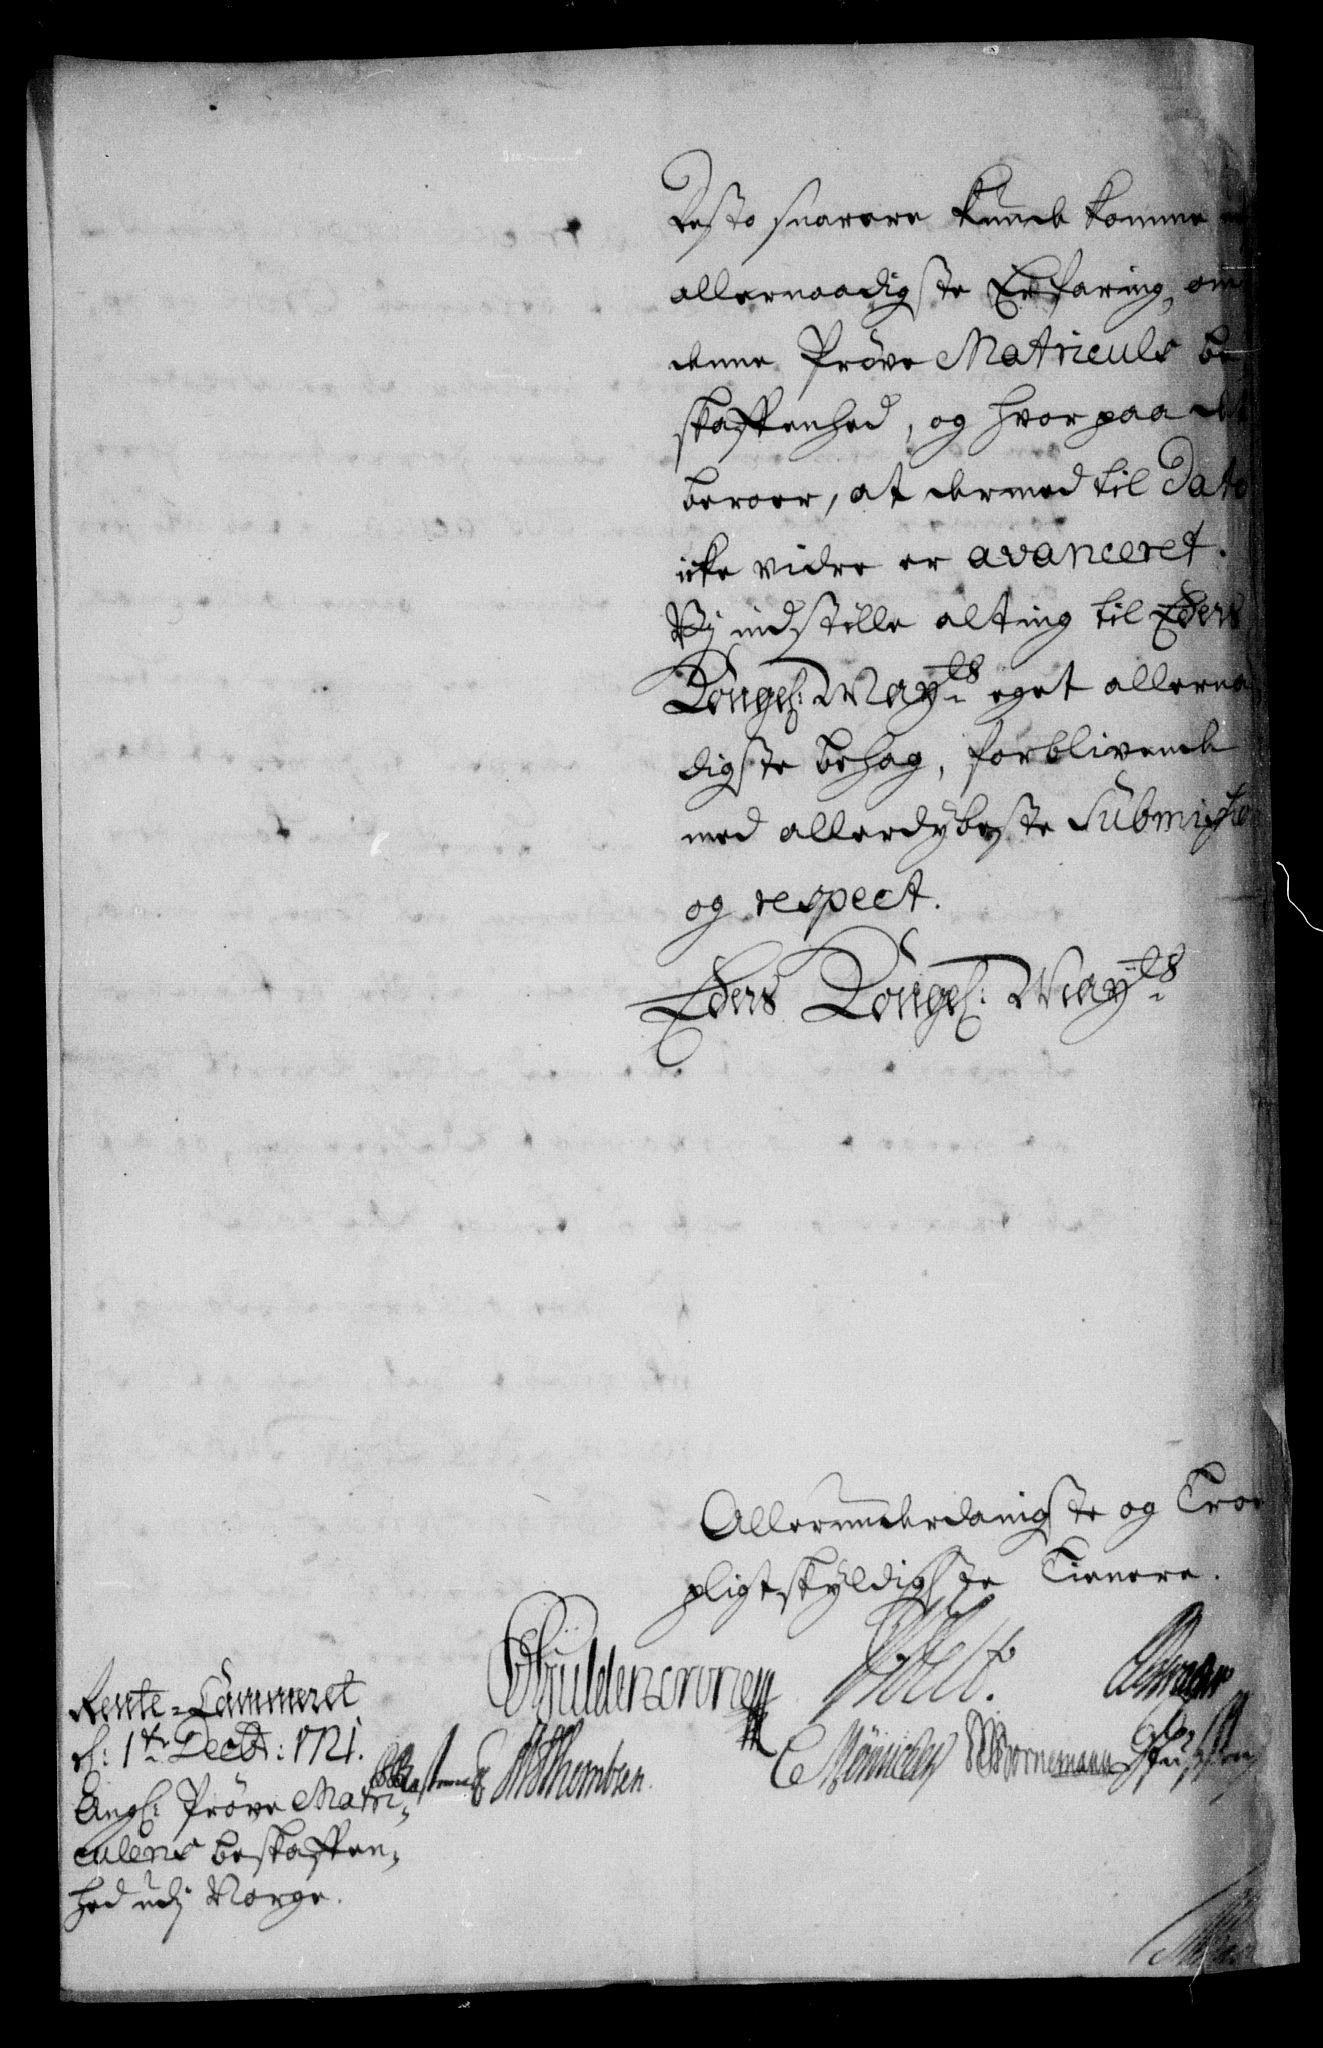 desto snarere kunde komme
allernaadigste Erfaring, om
denne Prøve Matriculs be
skaffenhed, og hvorpaa det
beroer, at dermed til Dato
icke vidre er avanceret.
Vj indstille alting til Eders
Kongel: May:ts eget allerna
digste behag, forblivende
med allerdybeste Submission
og respect.
Eders Kongel: May:ts
Allerunderdanigste og Troe
pligtskyldigste Tienere.
Güldencrone
Rente-Cammeret
d: 1te Decbr: 1721.
C Mönnichen Bornemann
Thombsen.
Angl: Prøve Matri-
culens beskaffen-
hed udj Norge.